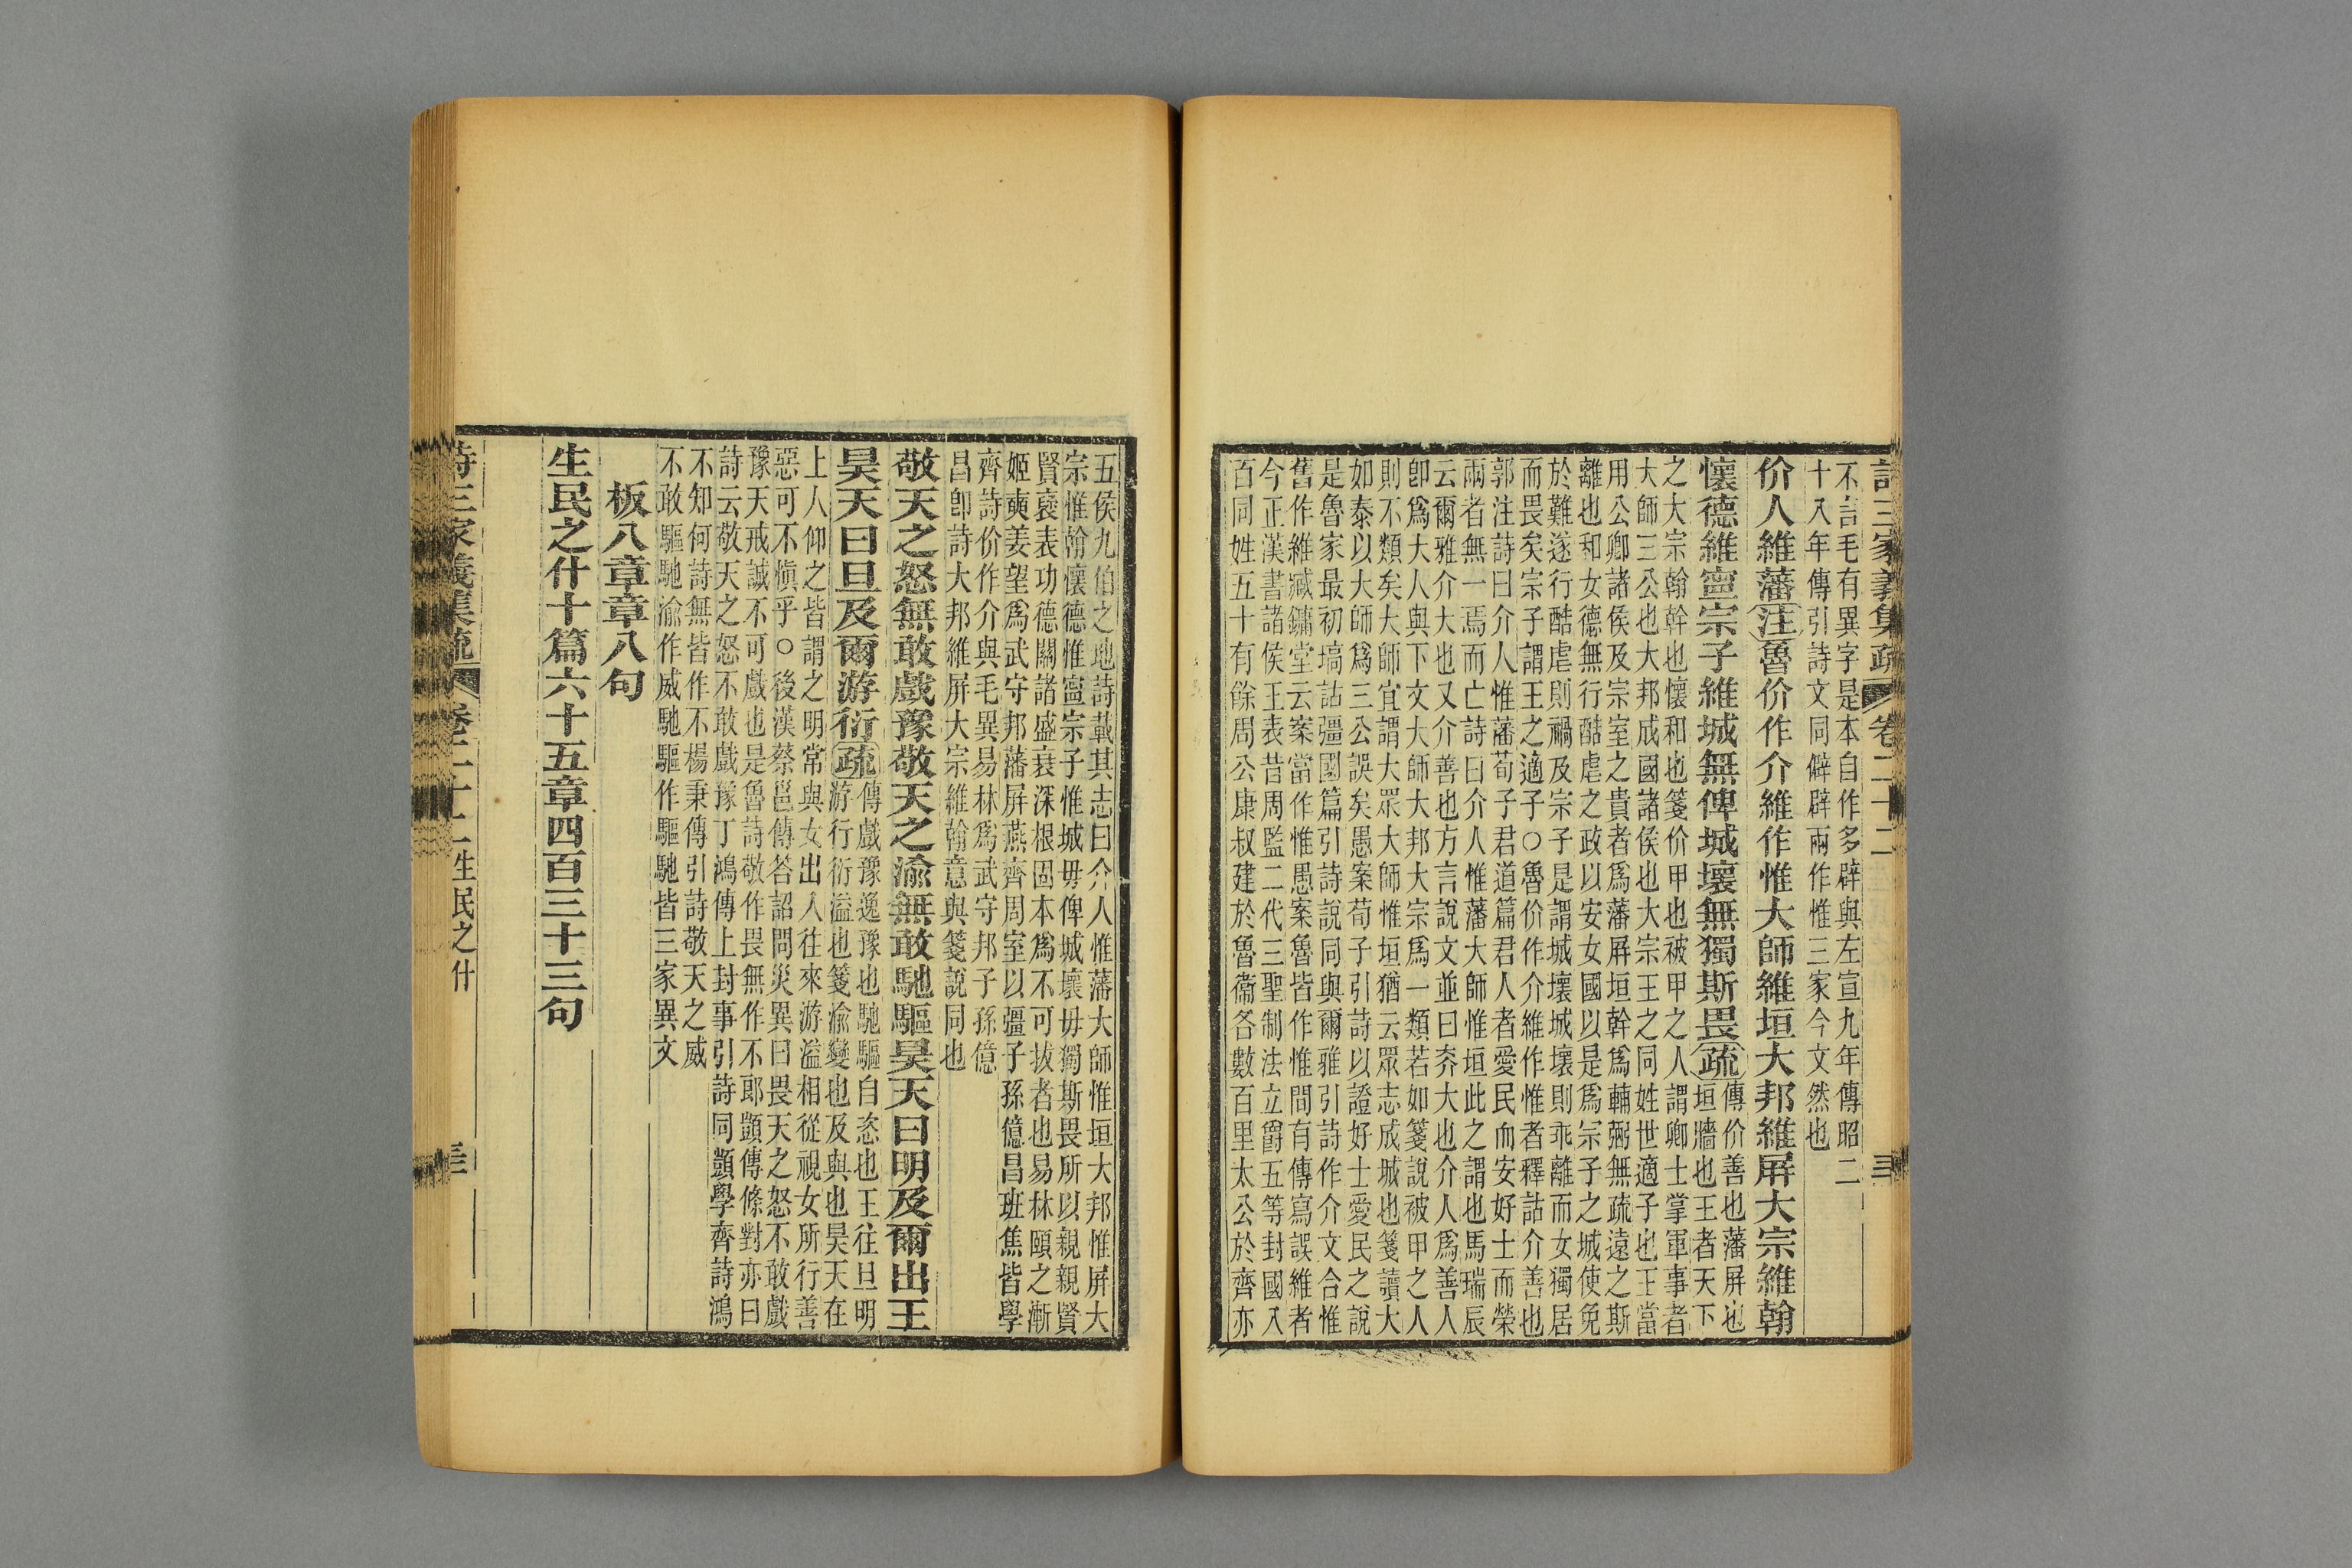 詩三家義集疏 卷二十二
不言毛有異字是本自作多辟與左宣九年傳昭二
十八年傳引詩文同僻辟兩作惟三家今文然也
价人維藩注魯价作介維作惟大師維垣大邦維屏大宗維翰
懷德維寧宗子維城無俾城壞無獨斯畏疏
傳价善也藩屏也
垣牆也王者天下
之大宗翰幹也懷和也箋价甲也被甲之人謂卿士掌軍事者
大師三公也大邦成國諸侯也大宗王之同姓世適子也王當
用公卿諸侯及宗室之貴者為藩屏垣幹為輔弼無疏遠之斯
離也和女德無行酷虐之政以安女國以是為宗子之城使免
於難遂行酷虐則禍及宗子是謂城壞城壞則乖離而女獨居
而畏矣宗子謂王之適子○魯价作介維作惟者釋詁介善也
郭注詩曰介人惟藩荀子君道篇君人者愛民而安好士而榮
兩者無一焉而亡詩曰介人惟藩大師惟垣此之謂也馬瑞辰
云爾雅介大也又介善也方言說文並曰夰大也介人為善人
卽為大人與下文大師大邦大宗為一類若如箋說被甲之人
則不類矣大師宜謂大眾大師惟垣猶云眾志成城也箋讀大
如泰以大師為三公誤矣愚案荀子引詩以證好士愛民之說
是魯家最初塙詁疆圉篇引詩說同與爾雅引詩作介文合惟
舊作維臧鏞堂云案當作惟愚案魯皆作惟問有傳寫誤維者
今正漢書諸侯王表昔周監二代三聖制法立爵五等封國八
百同姓五十有餘周公康叔建於魯衞各數百里太公於齊亦
五侯九伯之地詩載其志曰介人惟藩大師惟垣大邦惟屏大
宗惟翰懷德惟寧宗子惟城毋俾城壞毋獨斯畏所以親親賢
賢襃表功德關諸盛衰深根固本為不可拔者也易林頤之漸
姬奭姜望為武守邦藩屏燕齊周室以彊子孫億昌班焦皆學
齊詩价作介與毛異易林為武守邦子孫億
昌卽詩大邦維屏大宗維翰意與箋說同也
敬天之怒無敢戲豫敬天之渝無敢馳驅昊天曰明及爾出王
昊天曰旦及爾游衍疏
傳戲豫逸豫也馳驅自恣也王往旦明
游行衍溢也箋渝變也及與也昊天在
上人仰之皆謂之明常與女出入往來游溢相從視女所行善
惡可不愼乎○後漢蔡邕傳答詔問災異曰畏天之怒不敢戲
豫天戒誠不可戲也是魯詩敬作畏無作不郎顗傳條對亦曰
詩云敬天之怒不敢戲豫丁鴻傳上封事引詩同顗學齊詩鴻
不知何詩無皆作不楊秉傳引詩敬天之威
不敢驅馳渝作威馳驅作驅馳皆三家異文
板八章章八句
生民之什十篇六十五章四百三十三句
詩三家義集疏 卷二十二 生民之什